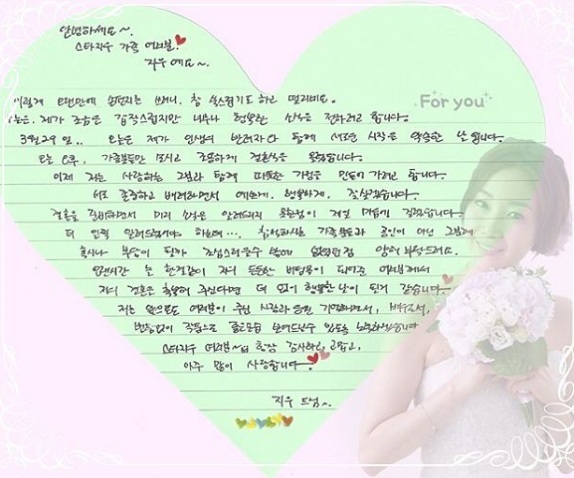 안녕하세요~.
스타지우 가족 여러분.
지우예요~.
For you
이렇게 오랜만에 손편지를 쓰려니, 참 쑥스럽기도 하고 떨리네요.
오늘은, 제가 조금은 갑작스럽지만 너무나 행복한 소식을 전하려고 합니다.
3월29일.. 오늘은 제가 인생의 반려자와 함께 새로운 시작을 약속한 날입니다.
오늘 오후, 가족분들만 모시고 조용하게 결혼식을 올렸습니다.
이제 저는 사랑하는 그분과 함께 따뜻한 가정을 만들어 가려고 합니다.
서로 존중하고 배려하면서 예쁘게, 행복하게, 잘 살겠습니다.
결혼을 준비하면서 미리 소식을 알려드리지 못한점이 제일 마음에 걸렸습니다.
더 일찍 알려드렸어야 하는데... 참석하시는 가족분들과 공인이 아닌 그분께
혹시나 부담이 될까 조심스러울수 밖에 없었던점 양해 부탁드려요.
오랜시간 늘 한결같이 저의 든든한 버팀목이 되어준 여러분께서
저의 결혼을 축복해 주신다면 더 없이 행복한 날이 될거 같습니다.
저는 앞으로도 여러분이 주신 사랑과 응원 기억하면서, 배우로서,
변함없이 작품으로 좋은모습 보여드릴수 있도록 노력하겠습니다
스타지우 여러분~ 항상 감사하고, 고맙고,
아주 많이 사랑합니다.
지우 드림~